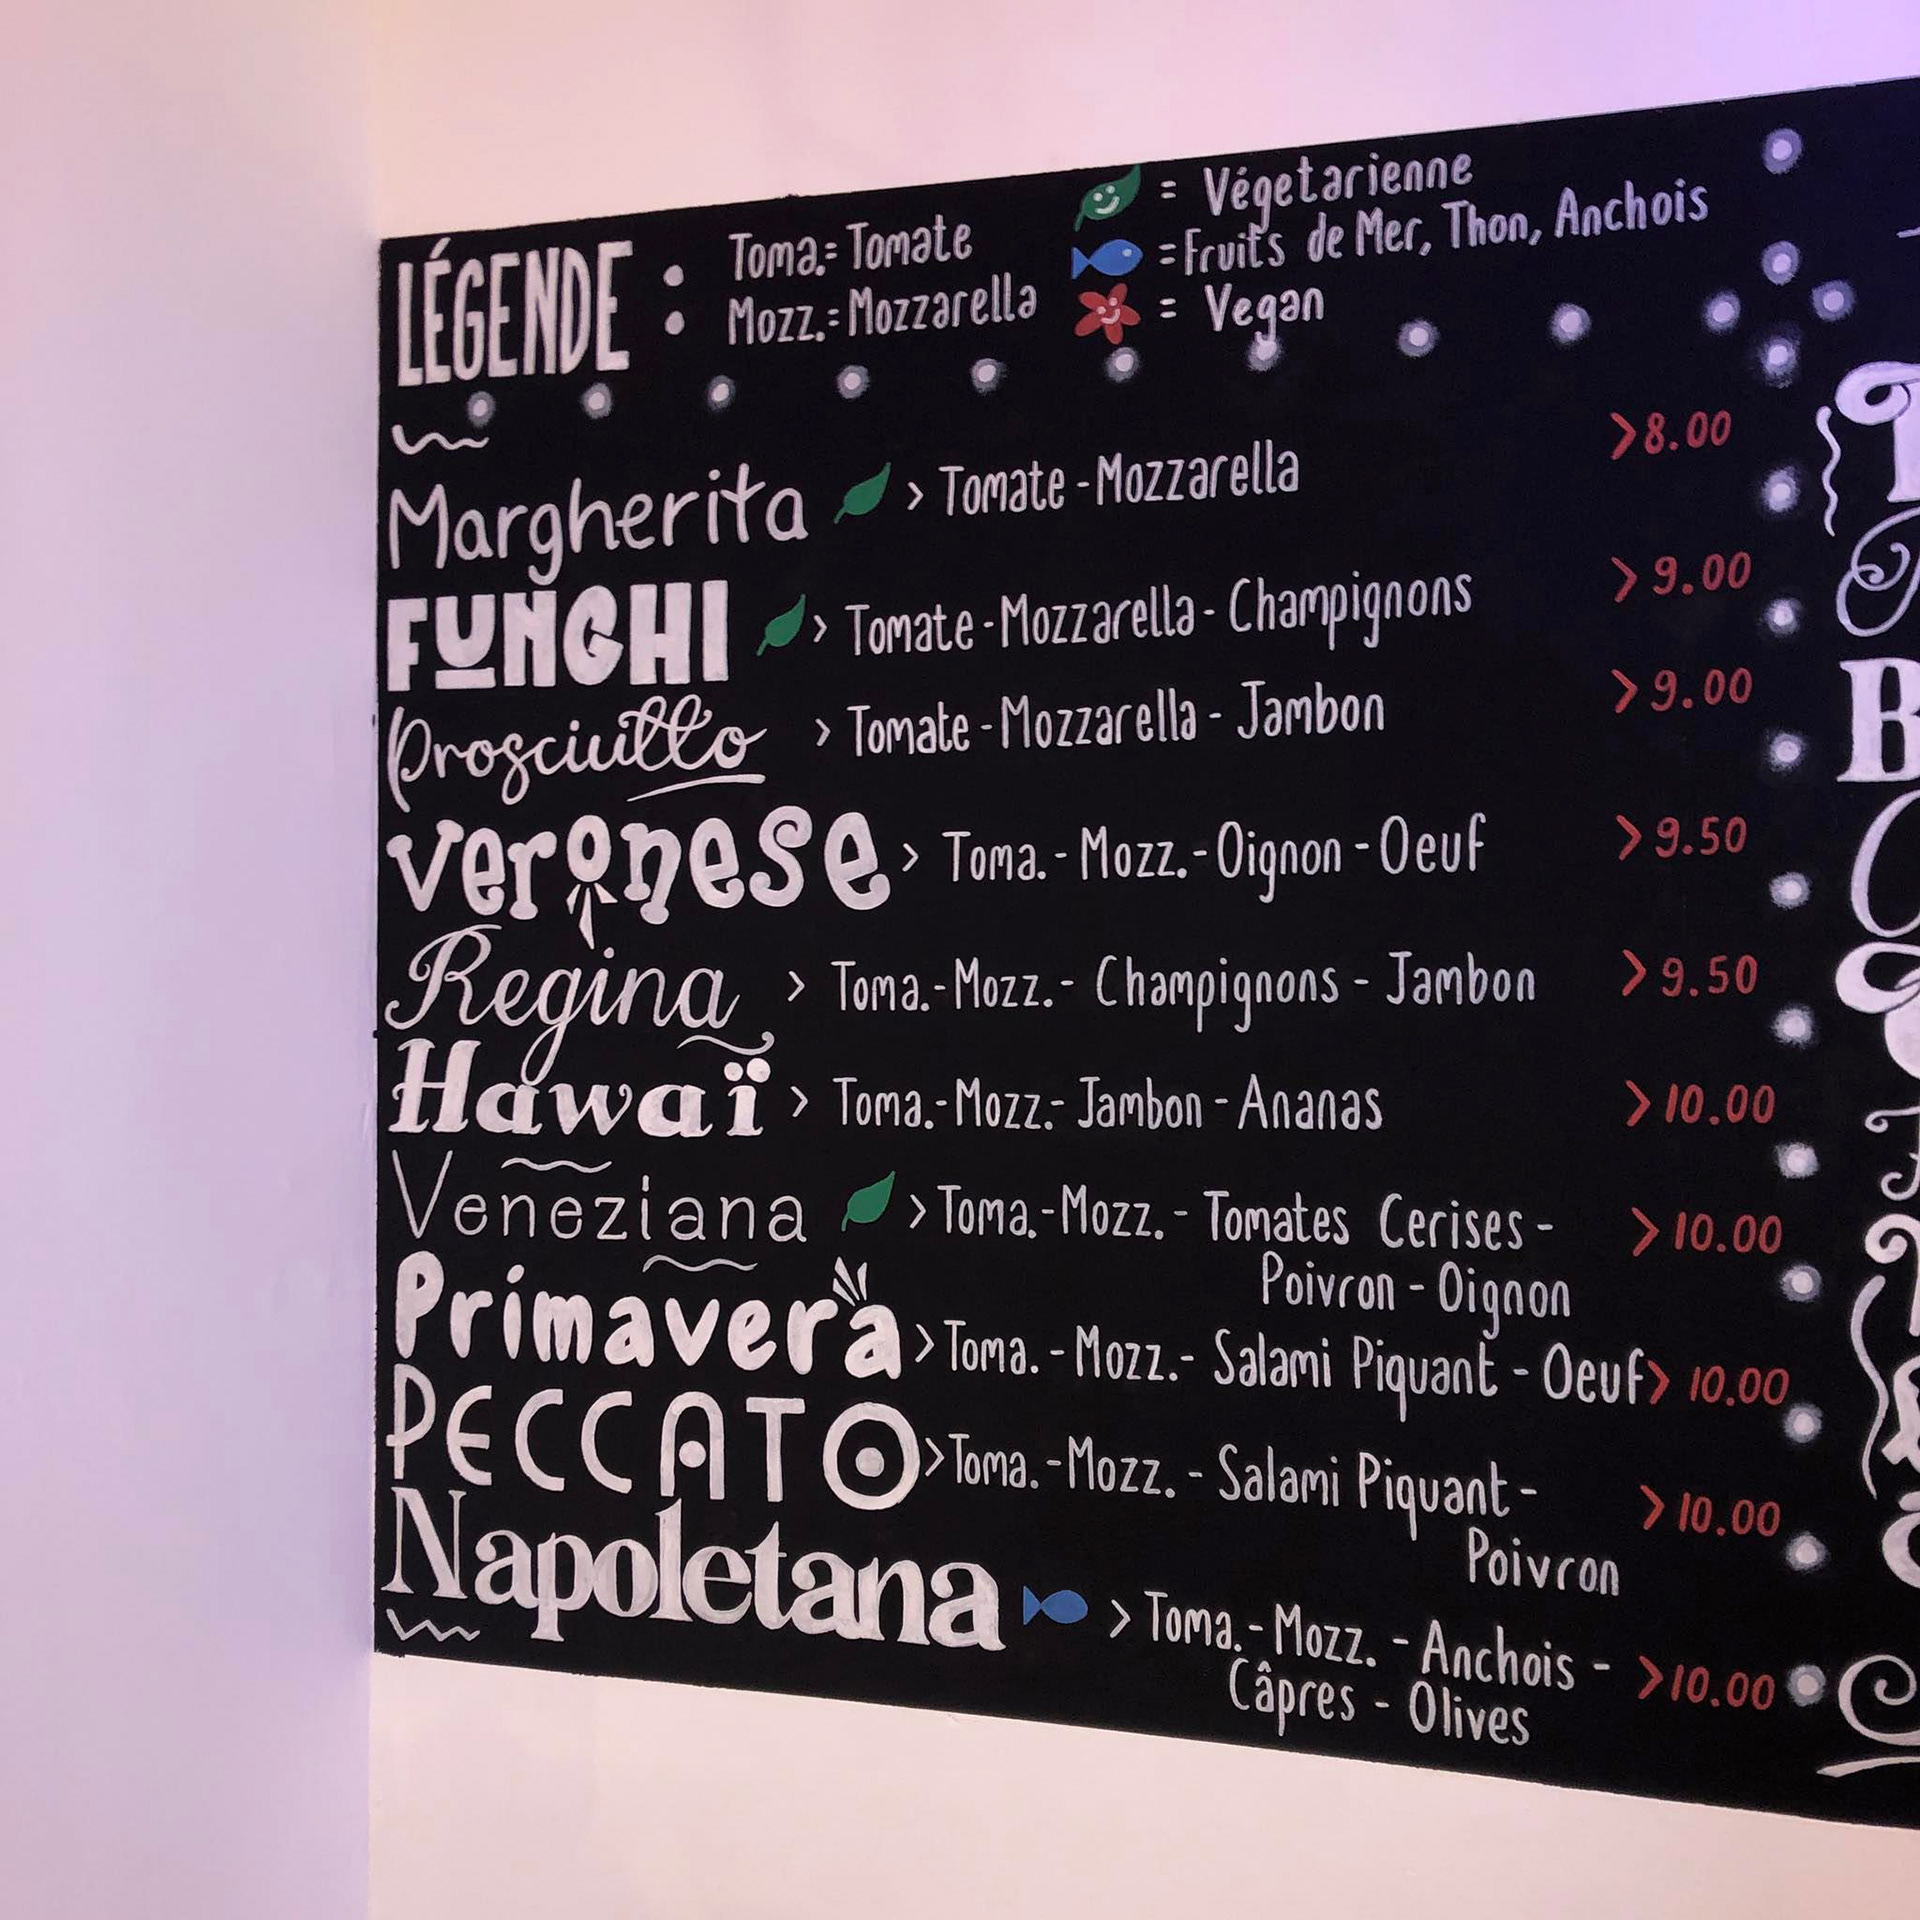 LÉGENDE :
Toma.= Tomate
Mozz.= Mozzarella
= Végetarienne
= Fruits de Mer, Thon, Anchois
= Vegan
Margherita > Tomate - Mozzarella >8.00
FUNGHI > Tomate - Mozzarella - Champignons >9.00
Prosciutto > Tomate - Mozzarella - Jambon >9.00
veronese > Toma. - Mozz. - Oignon - Oeuf >9.50
Regina > Toma.- Mozz.- Champignons - Jambon >9.50
Hawaï > Toma.- Mozz.- Jambon - Ananas >10.00
Veneziana > Toma.- Mozz. - Tomates Cerises - >10.00
Poivron - Oignon
Primavera > Toma. - Mozz.- Salami Piquant - Oeuf >10.00
PECCATO > Toma. - Mozz. - Salami Piquant - >10.00
Poivron
Napoletana > Toma.- Mozz. - Anchois - >10.00
Câpres - Olives